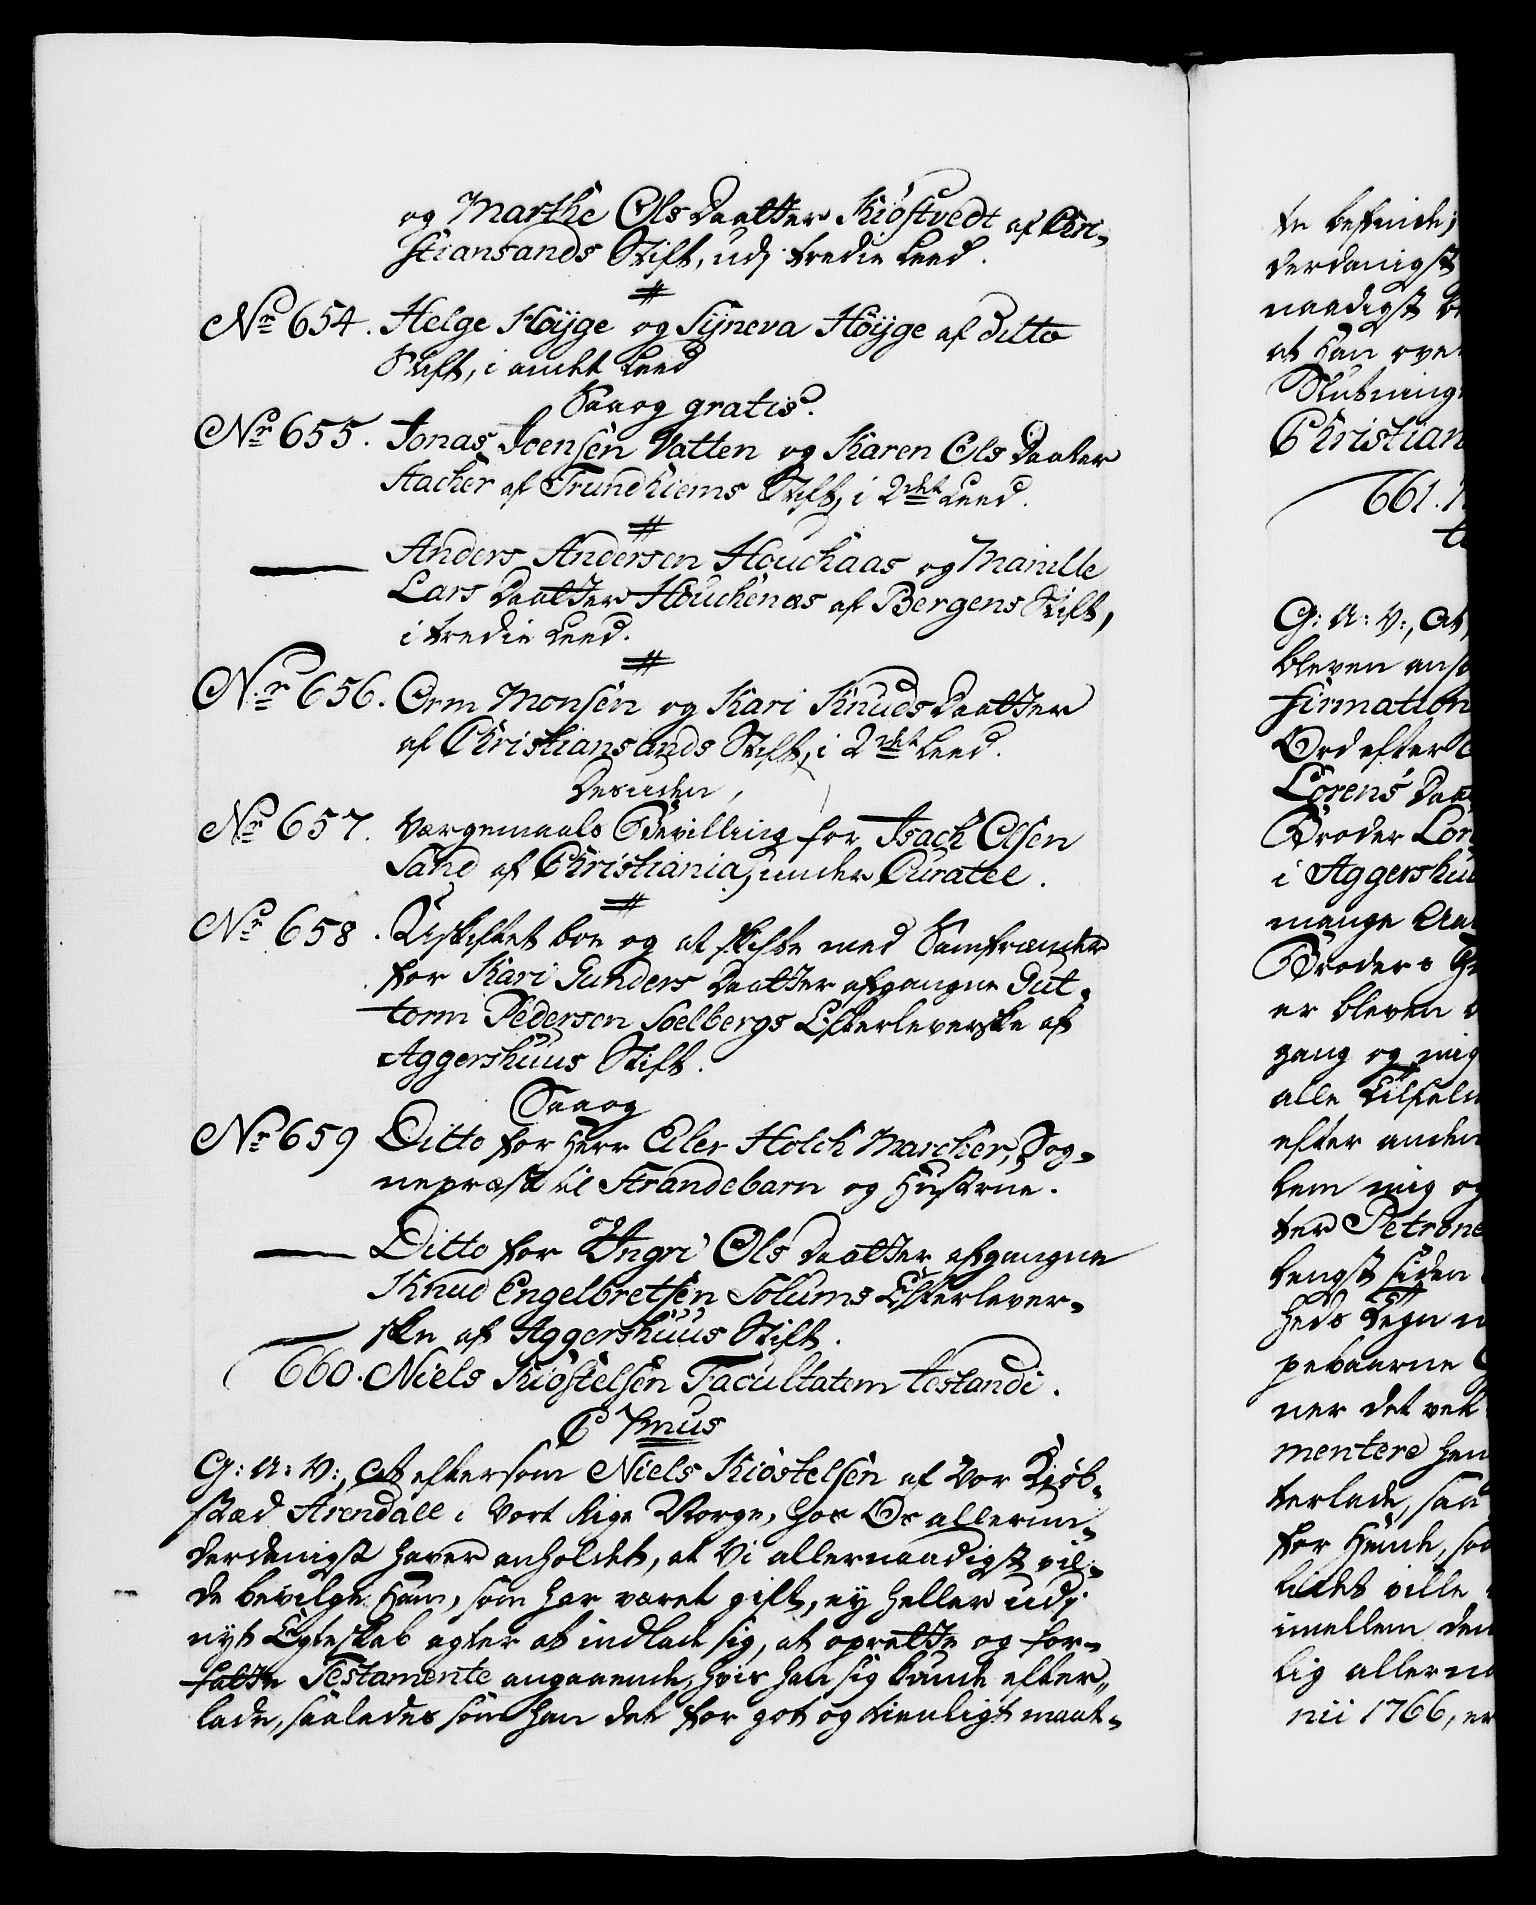 og Marthe Ols Daatter Kiöstvedt af Chri-
stiansands Stift, udj tredie Leed.
Nr 654. Helge Höyge og Syneva Höyge af ditto
Stift, i andet Leed
Saaog gratis.
Nr 655. Jonas Joensen Vatten og Karen Ols Daater
Hacher af Trundhiems Stift, i 2det Leed.
Anders Andersen Houchaas og Marille
Lars Daatter Houchenæs af Bergens Stift,
i tredie Leed.
Nr 656. Orm Monsen og Kari Knuds Daatter
af Christiansands Stift, i 2det Leed.
Desuden,
Nr 657. Værgemaals Bevilling for Isach Olsen
Sand af Christiania, under Curatel.
Nr 658. Uskiftet boe og at skifte med Samfrænder
for Kari Gunders Daatter afgangne Gut-
torm Pedersen Soelbergs Efterleverske af
Aggershuus Stift.
Saaog
Nr 659 Ditto for Herr Eiler Holch Marcher, Sog-
nepræst til Strandebarn og Hustrue.
og
Ditto for Yngri Ols Daatter afgangne
Knud Engelbretsen Solums Efterlever-
ske af Aggershuus Stift.
660. Niels Kiöstelsen Facultatem testandi.
C 7mus
G: A: V:, At eftersom Niels Kiöstelsen af Vor Kiöb-
stæd Arendall i Vort Rige Norge, hos Os allerun-
derdanigst haver anholdet, at Vi allernaadigst vil-
de bevilge Ham, som har været gift, ey heller udj
nyt Egteskab agter at indlade sig, at oprette og for-
fatte Testamente angaaende, hvis han sig kunde efter-
lade, saaledes som han det for got og tienligt maat-
te befinde;
derdanigst
naadigst
at Han
Slutning
Christian
661.
G: A: V:, At
bleven
firmation
Ord efter
Lorens
Broder
i Aggershu
mange
Broders
er bleven
gang og mig
alle
efter anden
lem mig og
ter Petrone
lengst siden
heds Tegn
pebaarne
ner det
mentere
terlade, saa
for Hende,
lidet ville
imellem den
lig allerna
nii 1766, er